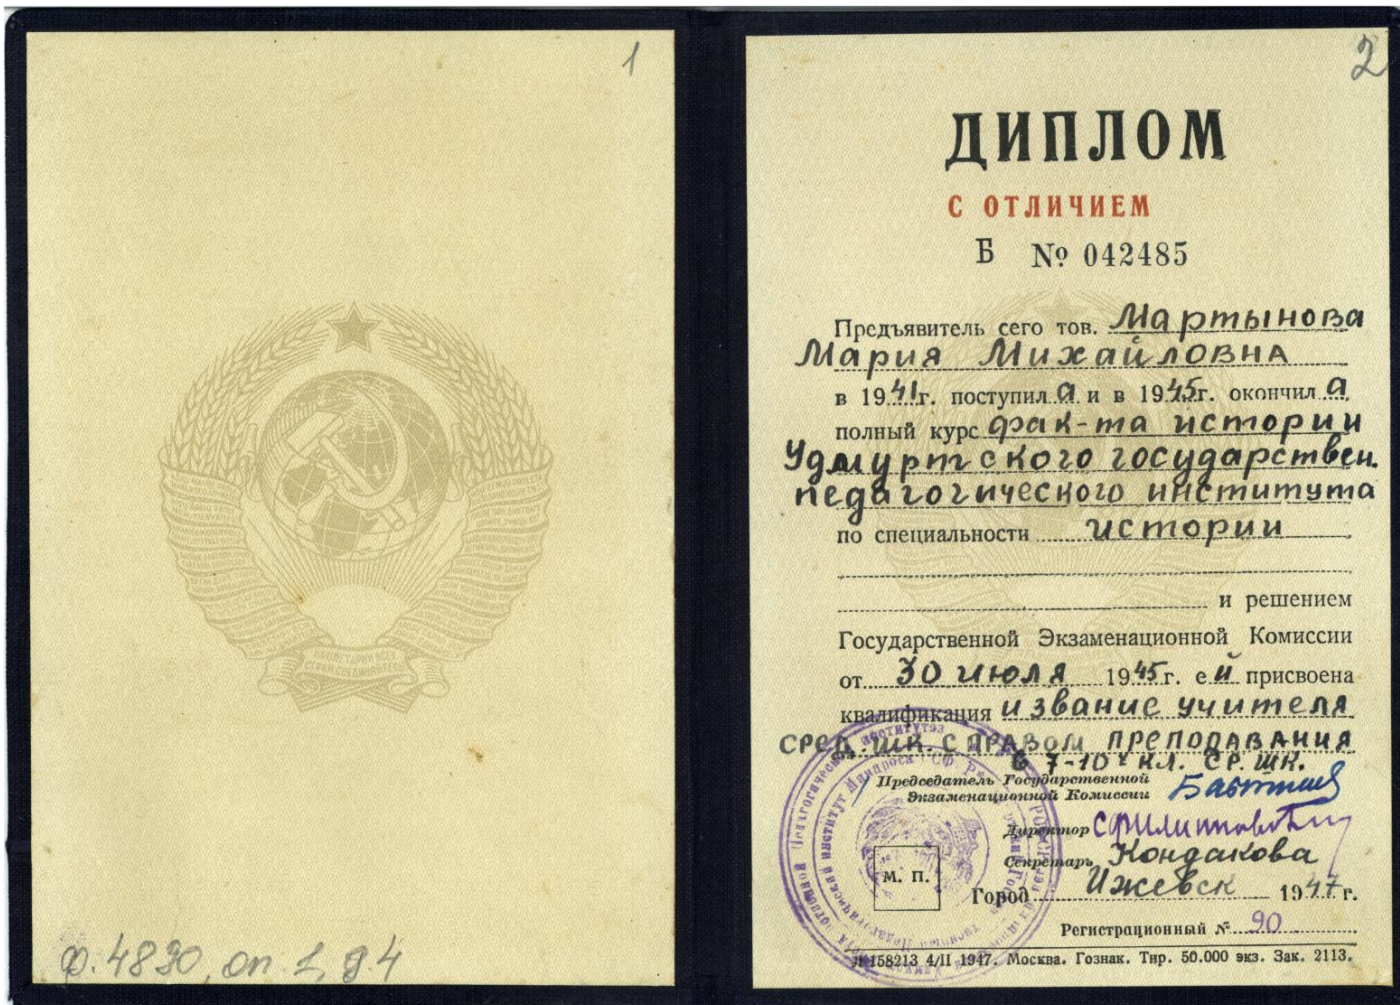 1
Ф. 4830, оп. 1, д. 4
2
ДИПЛОМ
С ОТЛИЧИЕМ
Б № 042485
Предъявитель сего тов. Мартынова
Мария Михайловна
в 1941 г. поступила и в 1945 г. окончила
полный курс фак-та истории
Удмуртского государствен.
педагогического института
по специальности истории
и решением
Государственной Экзаменационной Комиссии
от 30 июля 1945 г. ей присвоена
квалификация и звание учителя
СРЕД. ШК. С ПРАВОМ ПРЕПОДАВАНИЯ
в 7-10х КЛ. СР. ШК.
Председатель Государственной
Экзаменационной Комиссии
Директор
Секретарь Кондакова
М. П.
Город Ижевск 1947 г.
Регистрационный № 90
158213 4/II 1947. Москва. Гознак. Тир. 50.000 экз. Зак. 2113.